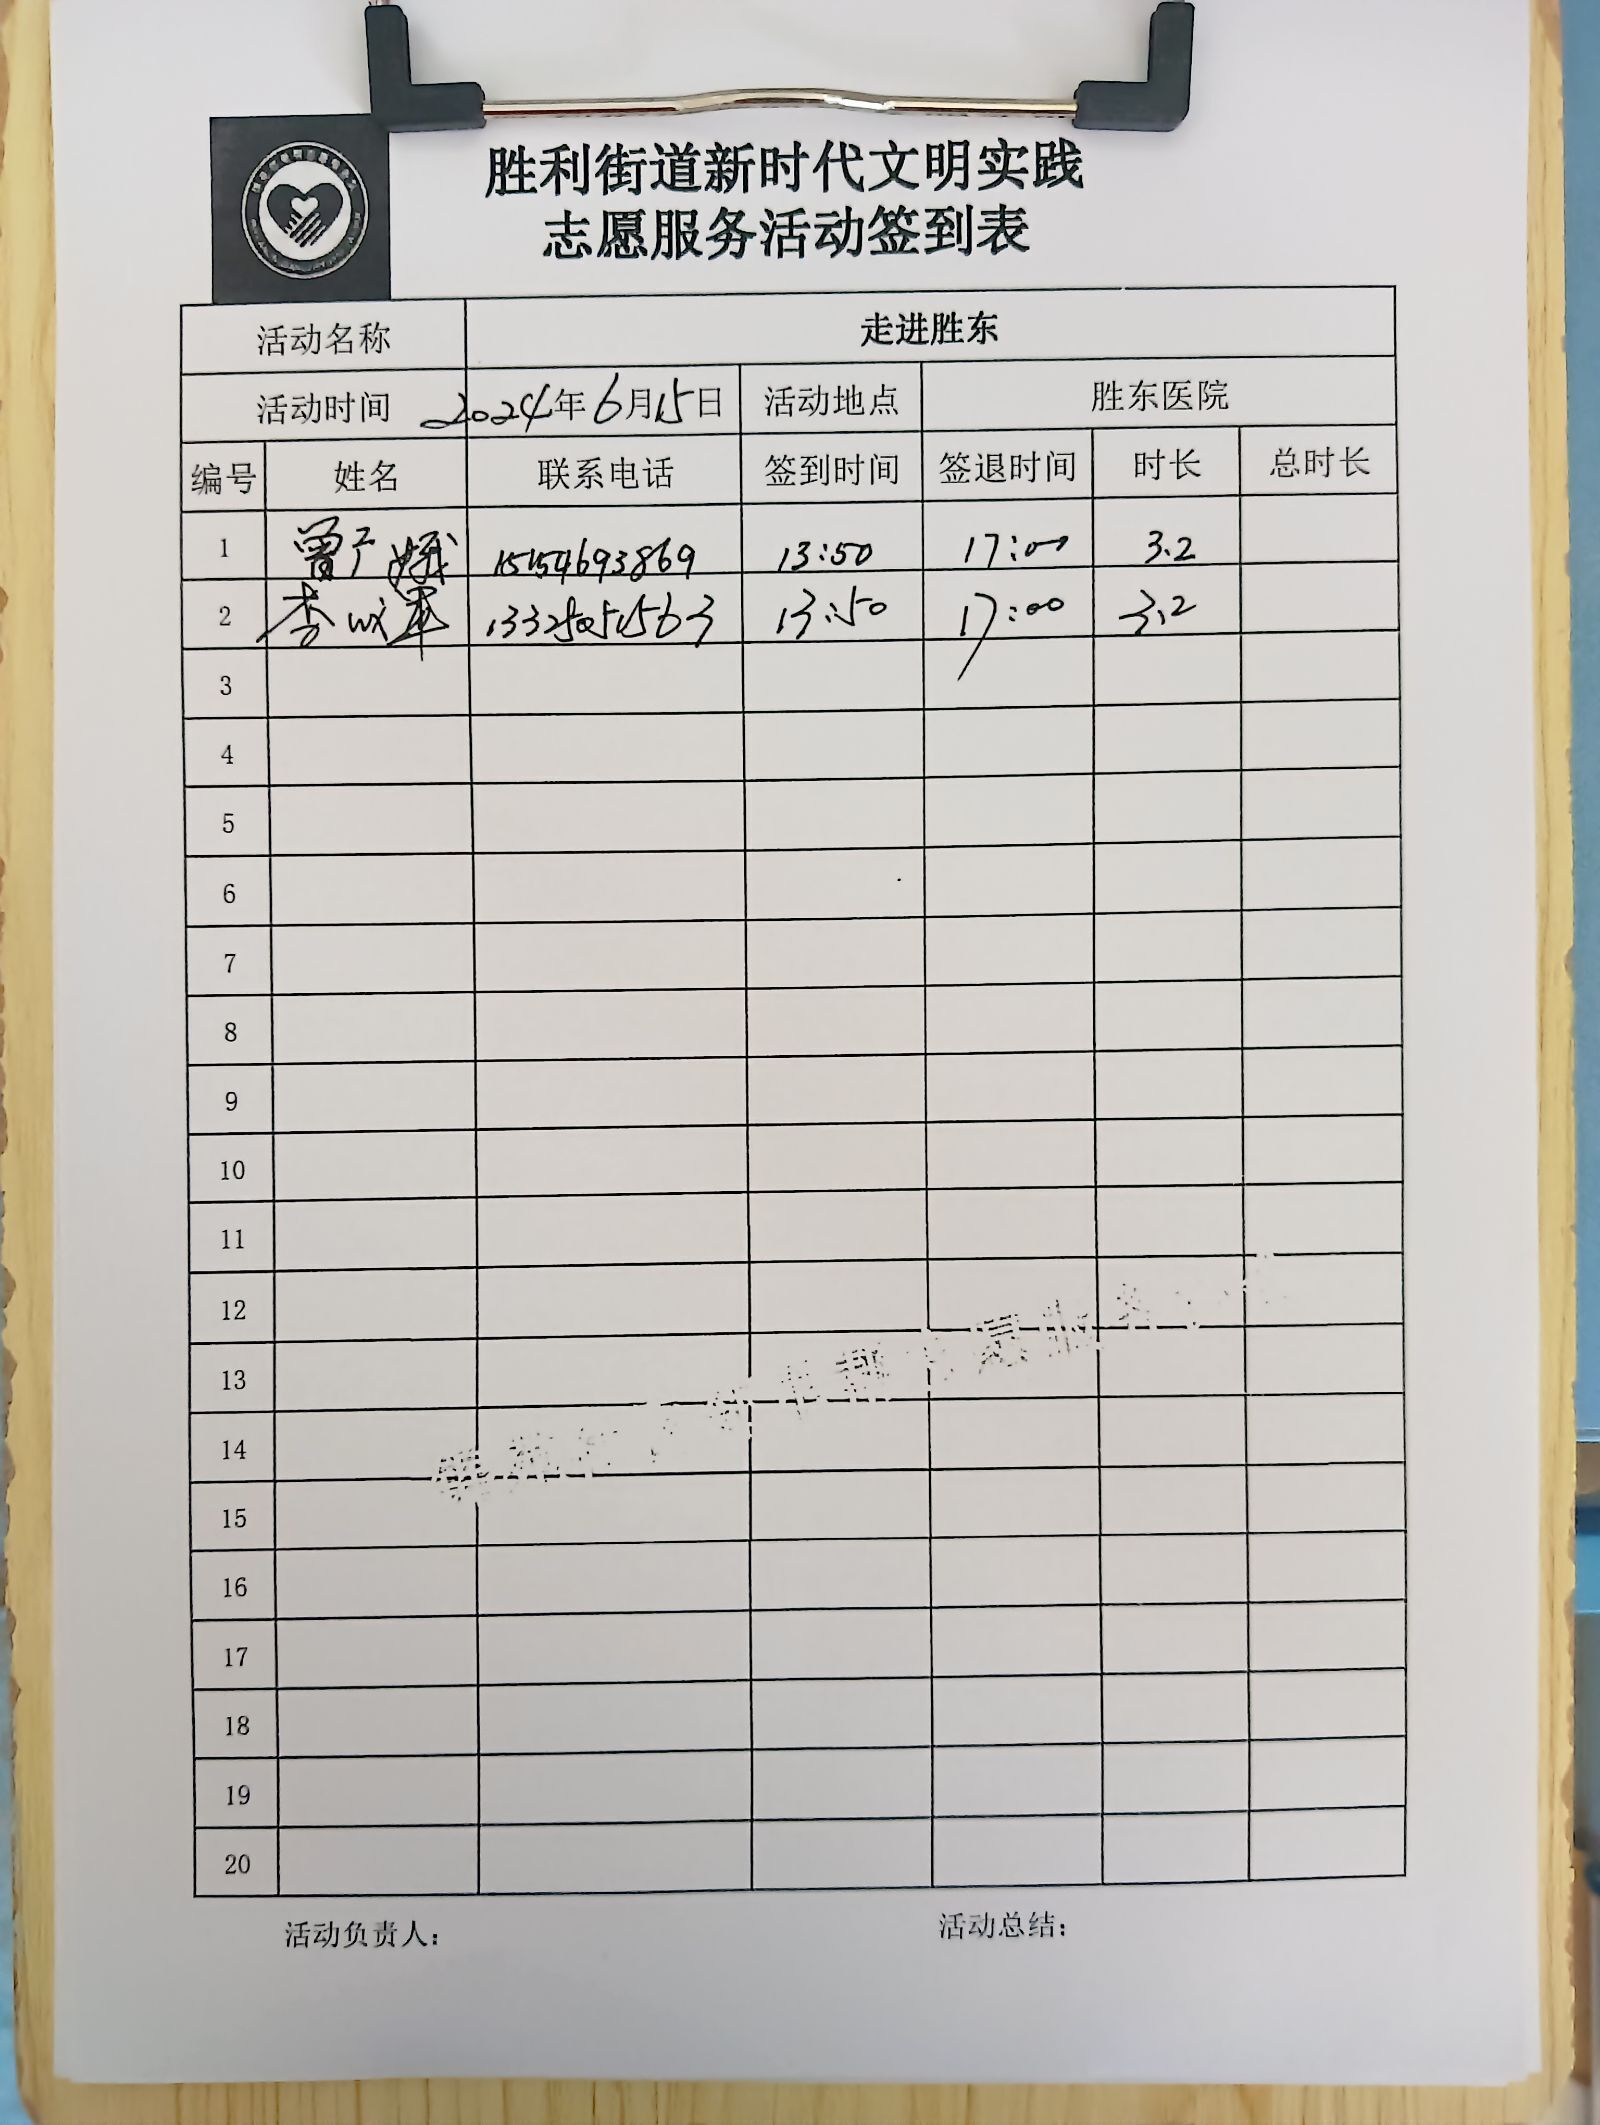 胜利街道新时代文明实践
志愿服务活动签到表
活动名称 走进胜东
活动时间 2024年6月15日 活动地点 胜东医院
编号 姓名 联系电话 签到时间 签退时间 时长 总时长
1 曾广娥 15154693869 13:50 17:00 3.2
2 李 军 13325051563 13:50 17:00 3.2
3
4
5
6
7
8
9
10
11
12
13
14
15
16
17
18
19
20
活动负责人: 活动总结: